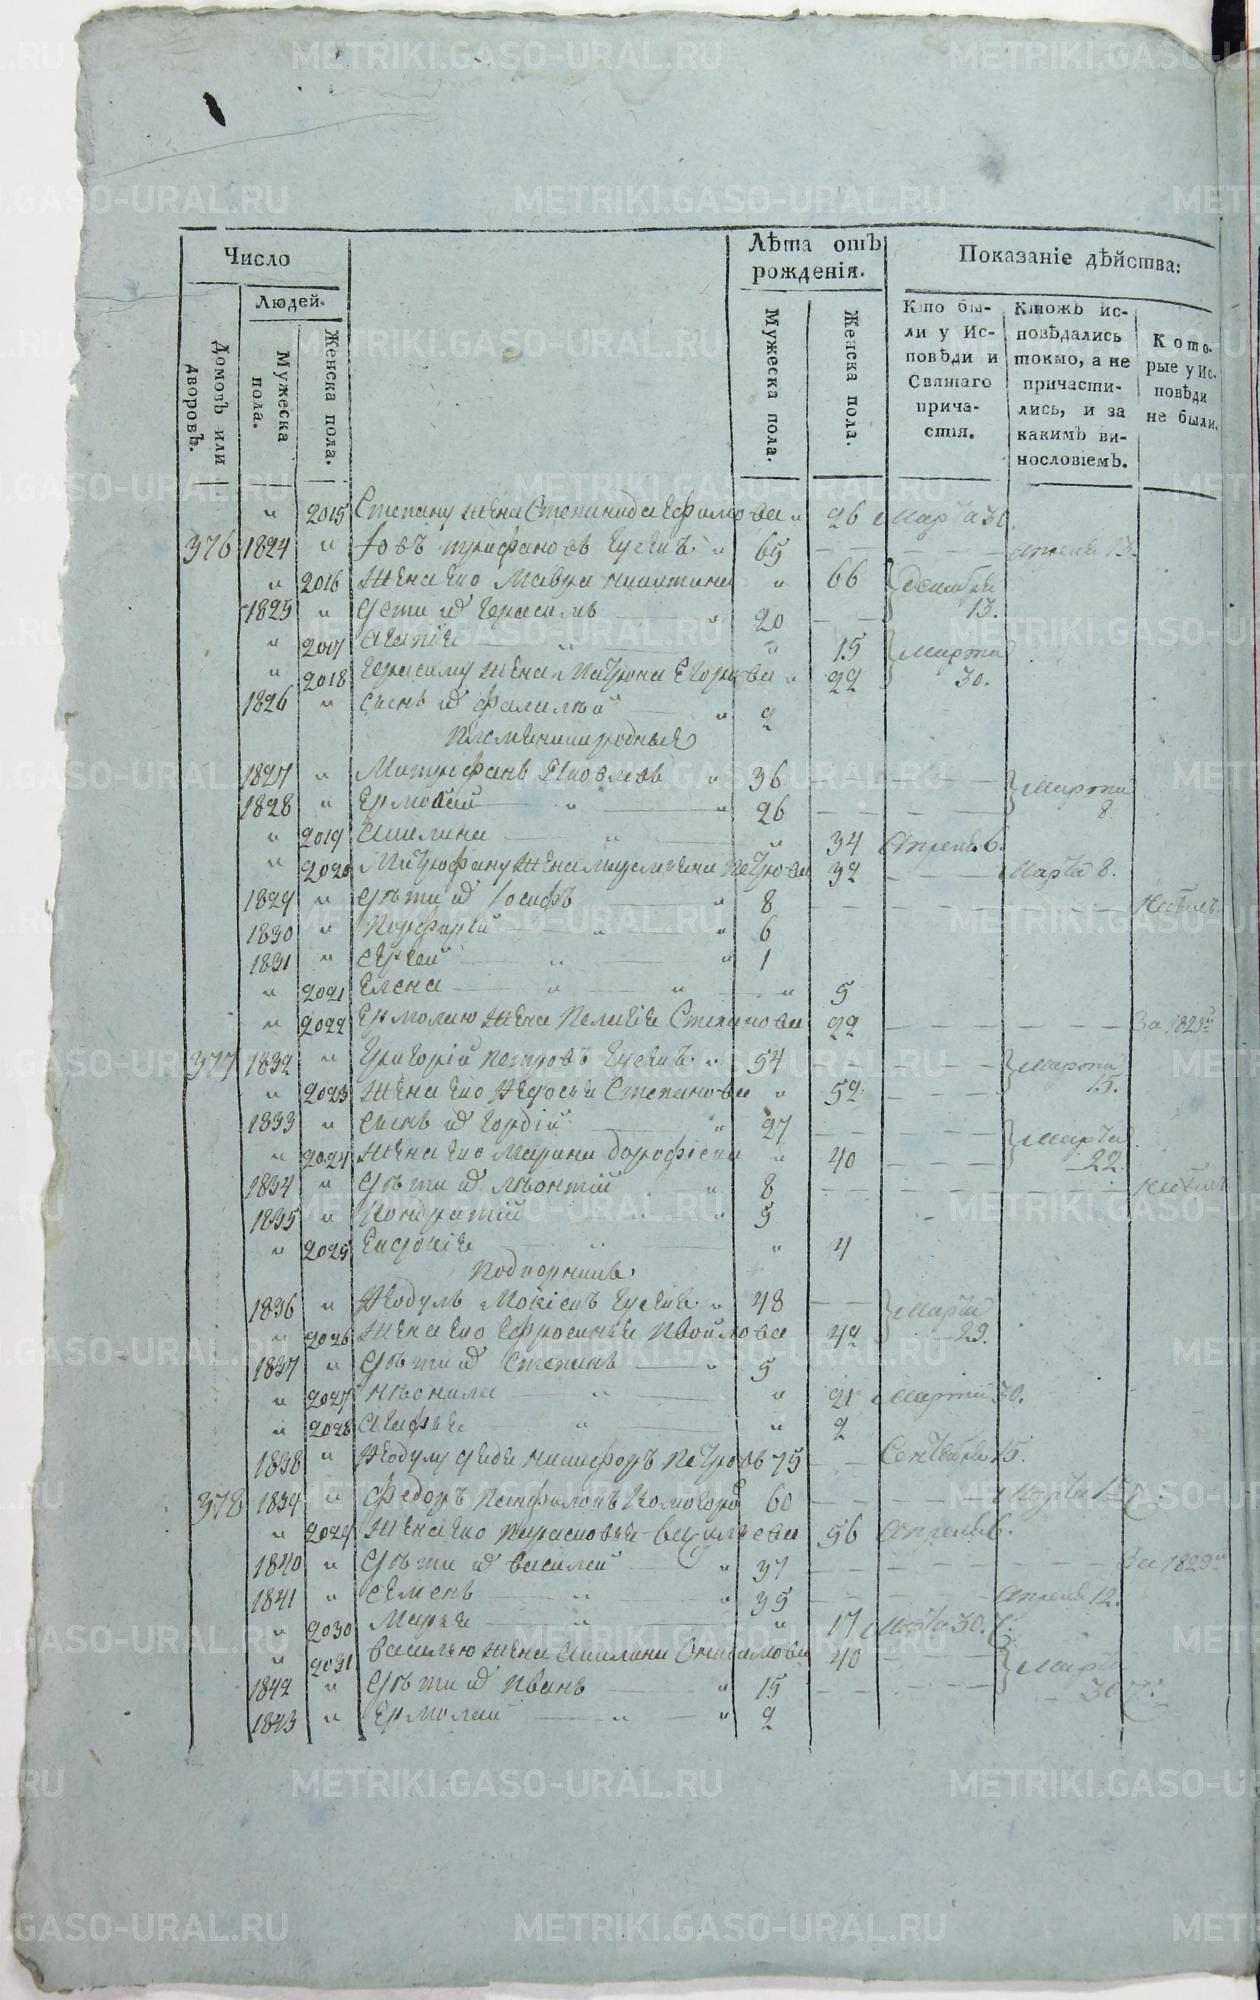 Число
Людей.
Домовъ или дворовъ.
Мужеска пола.
Женска пола.
Лѣта отъ рожденія.
Мужеска пола.
Женска пола.
Показаніе дѣйства:
Кто бы-
ли у Ис-
повѣди и
Святаго
прича-
стія.
Ктожъ ис-
повѣдались
токмо, а не
причасти-
лись, и за
какимъ ви-
нословіемъ.
Кото-
рые у Ис-
повѣди
не были.
" 2015 Степану жена Степанида Ефимова " 26 Марта 30.
376 1824 " Іовъ Трифановъ Гусевъ " 65 Апреля 13.
" 2016 Жена его Мавра Никитина " 66 Декабря
1825 " Дети их Герасимъ " 20 13.
" 2017 Агапія " " 15 Марта
" 2018 Герасиму жена Матрона Егорова " 22 30.
1826 " Сынъ их Фалалей " 2
Племянникиродныя
1827 " Митрофанъ Яковлевъ " 36 Марта
1828 " Ермолай " " 26 8
" 2019 Акилина " " 34 Апреля 6.
" 2020 Митрофану жена Маремьяна Петрова 32 Марта 8.
1829 " Дѣти их Іосифъ " 8
1830 " Порфирій " " 6
1831 " Сергей " " 1
" 2021 Елена " " " 5
" 2022 Ермолаю жена Пелагія Степанова 22 За 1829й
377 1832 " Григорій Петровъ Гусевъ " 54 Марта
" 2023 Жена его Федосья Степанова " 52 15.
1833 " Сынъ их Гордій " 27 Марта
" 2024 Жена его Марина Дорофіева " 40 22.
1834 " Дѣти их Леонтій " 8
1835 " Кондратій " " 5
" 2025 Евдокія " " 4
Подворникъ
1836 " Федулъ Мокіевъ Гусевъ " 48 Марта
" 2026 Жена его Ефросинья Измайлова 42 29.
1837 " Дѣти их Степанъ " 5
" 2027 Неонила " " 21 Марта 30.
" 2028 Агафья " " 2
1838 " Федулу дядя Никифоръ Петровъ 75 Сентября 15.
378 1839 " Федоръ Панфиловъ Комогоров 60 Марта
" 2029 Жена его Парасковья Васильева 56 Апреля 6.
1840 " Дѣти их Василей " 37 За 1829й
1841 " Семенъ " " 35 Апреля 12.
" 2030 Марья " " 17 Марта 30.
" 2031 Василью жена Акилина Онисимова 40 Марта
1842 " Дѣти их Иванъ " 15 30
1843 " Ермолай " " 2
METRIKI.GASO-URAL.RU